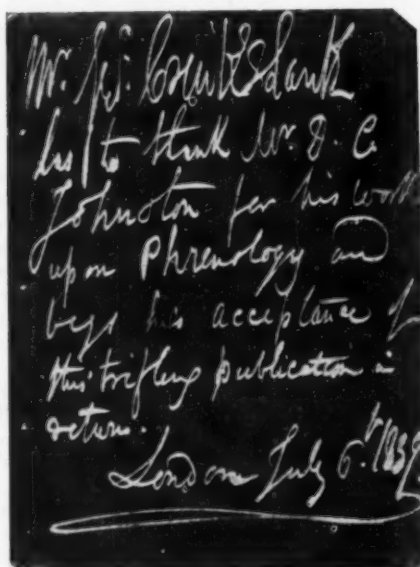 Mr. Geo. Cruikshank
has to thank Mr. D. C.
Johnston for his work
upon Phrenology and
begs his acceptance of
this trifling publication in
return.
London July 6th.